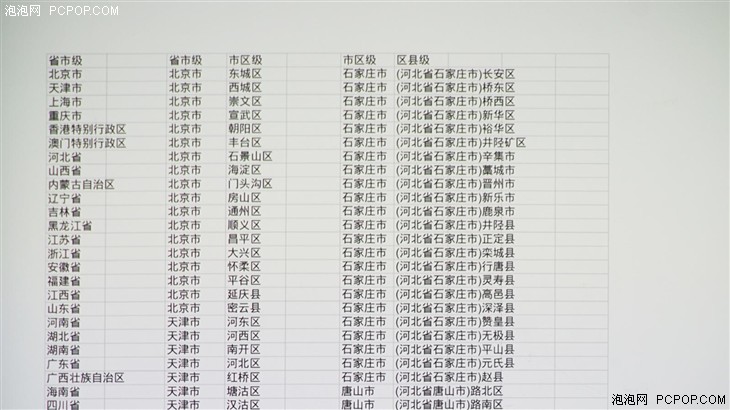 泡泡网 PCPOP.COM
省市级 省市级 市区级 市区级 区县级
北京市 北京市 东城区 石家庄市 (河北省石家庄市)长安区
天津市 北京市 西城区 石家庄市 (河北省石家庄市)桥东区
上海市 北京市 崇文区 石家庄市 (河北省石家庄市)桥西区
重庆市 北京市 宣武区 石家庄市 (河北省石家庄市)新华区
香港特别行政区 北京市 朝阳区 石家庄市 (河北省石家庄市)裕华区
澳门特别行政区 北京市 丰台区 石家庄市 (河北省石家庄市)井陉矿区
河北省 北京市 石景山区 石家庄市 (河北省石家庄市)辛集市
山西省 北京市 海淀区 石家庄市 (河北省石家庄市)藁城市
内蒙古自治区 北京市 门头沟区 石家庄市 (河北省石家庄市)晋州市
辽宁省 北京市 房山区 石家庄市 (河北省石家庄市)新乐市
吉林省 北京市 通州区 石家庄市 (河北省石家庄市)鹿泉市
黑龙江省 北京市 顺义区 石家庄市 (河北省石家庄市)井陉县
江苏省 北京市 昌平区 石家庄市 (河北省石家庄市)正定县
浙江省 北京市 大兴区 石家庄市 (河北省石家庄市)栾城县
安徽省 北京市 怀柔区 石家庄市 (河北省石家庄市)行唐县
福建省 北京市 平谷区 石家庄市 (河北省石家庄市)灵寿县
江西省 北京市 延庆县 石家庄市 (河北省石家庄市)高邑县
山东省 北京市 密云县 石家庄市 (河北省石家庄市)深泽县
河南省 天津市 河东区 石家庄市 (河北省石家庄市)赞皇县
湖北省 天津市 河西区 石家庄市 (河北省石家庄市)无极县
湖南省 天津市 南开区 石家庄市 (河北省石家庄市)平山县
广东省 天津市 河北区 石家庄市 (河北省石家庄市)元氏县
广西壮族自治区 天津市 红桥区 石家庄市 (河北省石家庄市)赵县
海南省 天津市 塘沽区 唐山市 (河北省唐山市)路北区
四川省 天津市 汉沽区 唐山市 (河北省唐山市)路南区
泡泡网 PCPOP.COM